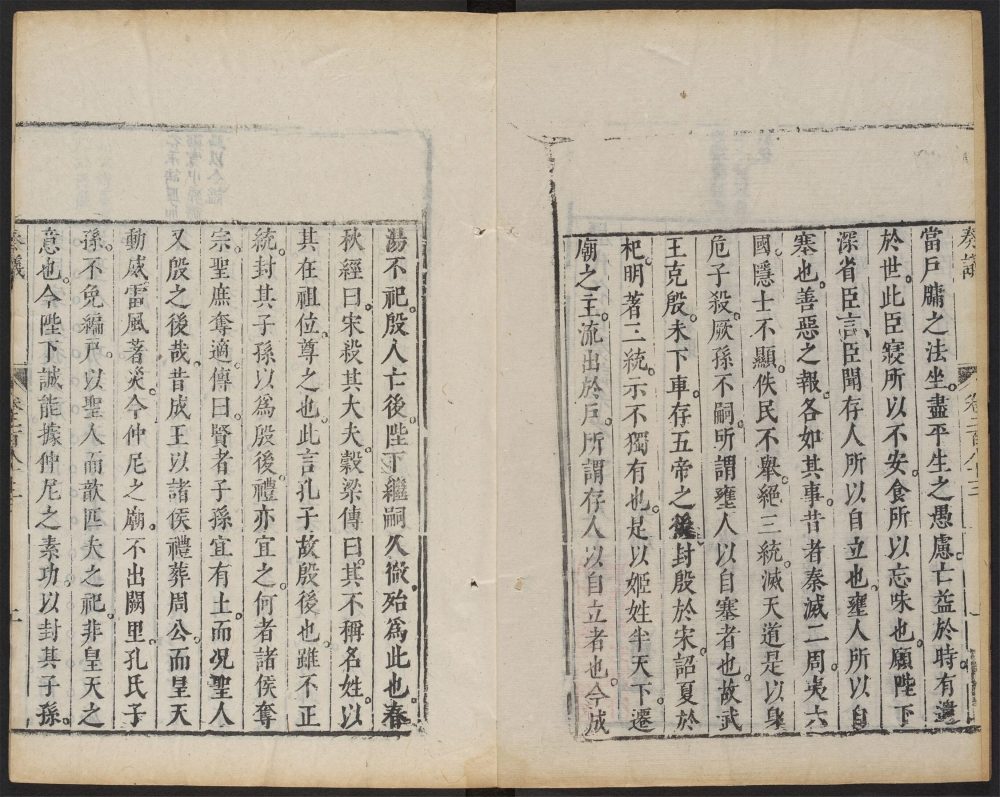 奏議
卷二百八十三
當戸牖之法坐。盡平生之愚慮。亡益於時。有遺
於世。此臣寢所以不安。食所以忘味也。願陛下
深省臣言。臣聞存人所以自立也。壅人所以自
塞也。善惡之報。各如其事。昔者秦滅二周。夷六
國。隱士不顯。佚民不舉。絕三統。滅天道。是以身
危子殺。厥孫不嗣。所謂壅人以自塞者也。故武
王克殷。未下車。存五帝之後。封殷於宋。詔夏於
杞。明著三統。示不獨有也。是以姬姓半天下。遷
廟之主。流出於戸。所謂存人以自立者也。今成
湯不祀。殷人亡後。陛下繼嗣久微。殆爲此也。春
秋經曰。宋殺其大夫。榖梁傳曰。其不稱名姓。以
其在祖位。尊之也。此言孔子故殷後也。雖不正
統。封其子孫以爲殷後。禮亦宜之。何者。諸侯奪
宗。聖庶奪適。傳曰。賢者子孫宜有土。而况聖人
又殷之後哉。昔成王以諸侯禮葬周公。而皇天
動威。雷風著災。今仲尼之廟。不出闕里。孔氏子
孫。不免編戸。以聖人而歆匹夫之祀。非皇天之
意也。今陛下誠能據仲尼之素功。以封其子孫。
奏議
卷二百八十三